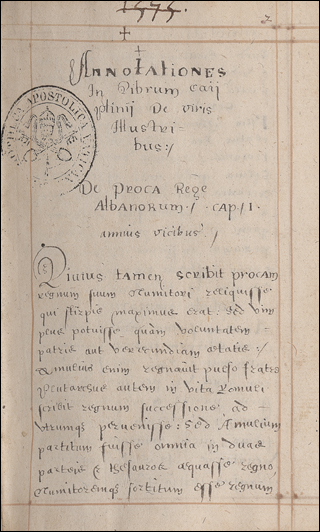 1575.
2
Annotationes
In Librum Caij
plinij De viris
Illustri-
bus:/
BIBLIOTHECA APOSTOLICA VATICANA
De Proca Rege
Albanorum./. cap. / 1.
annuis vicibus. /
Livius tamen scribit procam
regnum suum Numitori reliquisse
qui stirpis maximus erat: sed vim
plus potuisse quàm voluntatem
patris aut verecundiam aetatis:/
Amulius enim regnauit pulso fratre
Plutarchus autem in vita Romuli
scribit regnum successione ad
vtrumq; peruenisse: Sed Amulium
partitum fuisse omnia in duas
parteis & thesauros aequasse regno,
Numitoremq; sortitum esse regnum